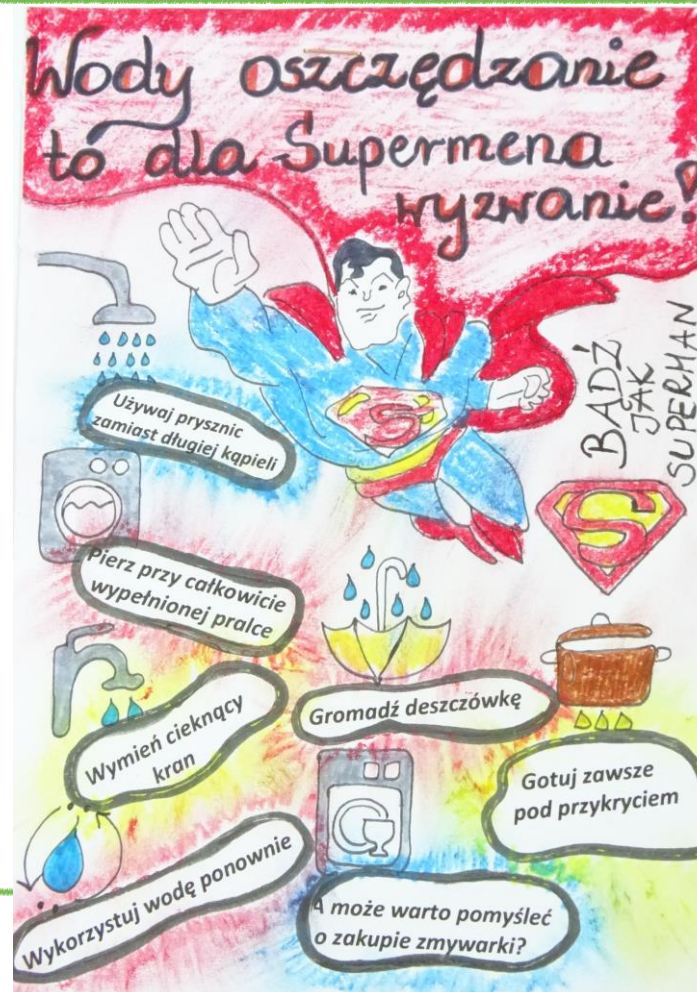 Wody oszczędzanie
to dla Supermena
wyzwanie!
BĄDŹ
JAK
SUPERMAN
S
S
Używaj prysznic
zamiast długiej kąpieli
Pierz przy całkowicie
wypełnionej pralce
Wymień cieknący
kran
Gromadź deszczówkę
Gotuj zawsze
pod przykryciem
Wykorzystuj wodę ponownie
A może warto pomyśleć
o zakupie zmywarki?